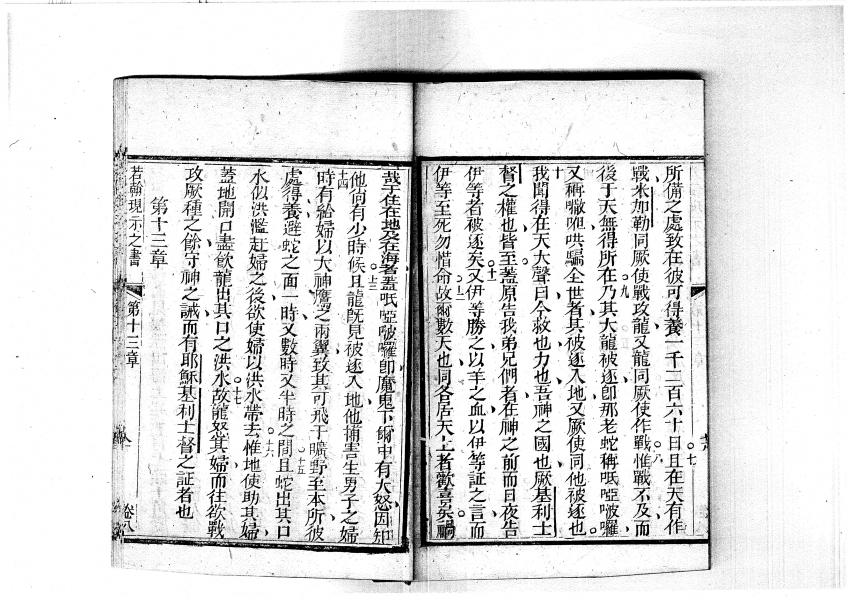 所備之處致在彼可得養一千二百六十日且在天有作
戰米加勒同厥使戰攻龍又龍同厥使作戰惟戰不及而
後于天無得所在乃其大龍被逐卽那老蛇稱呧啞啵囉
又稱㘔哋哄騙全世者其被逐入地又厥使同他被逐也
我聞得在天大聲曰今救也力也吾神之國也厥基利士
督之權也皆至蓋原告我弟兄們者在神之前而日夜告
伊等者被逐矣又伊等勝之以羊之血以伊等証之言而
伊等至死勿惜命故爾數天也同各居天上者歡喜矣禍
哉于住在地及在海者蓋呧啞啵囉卽魔鬼下爾中有大怒因知
他尚有少時候且龍旣見被逐入地他捕害生男子之婦
時有給婦以大神鷹之兩翼致其可飛于曠野至本所彼
處得養避蛇之面一時又數時又半時之間且蛇出其口
水似洪濫赶婦之後欲使婦以洪水帶去惟地使助其婦
蓋地開口盡飲龍出其口之洪水故龍怒其婦而往欲戰
攻厥種之餘守神之誡而有耶穌基利士督之証者也
第十三章
若翰現示之書
第十三章
卷八